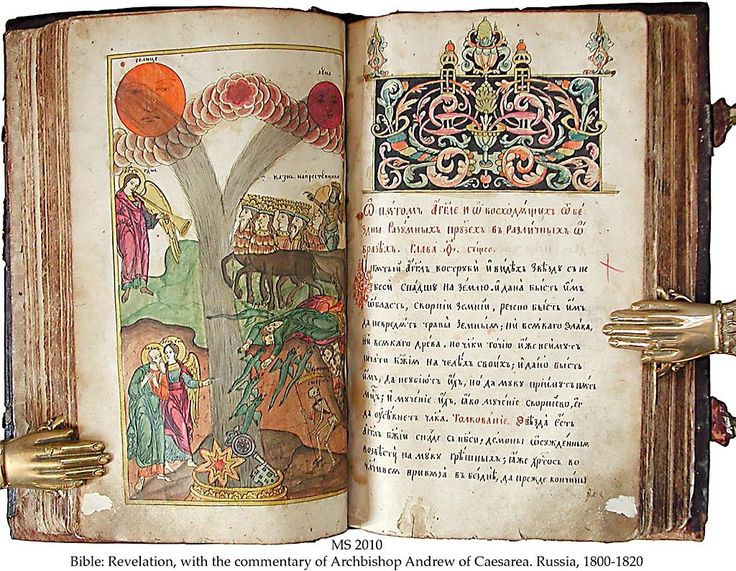 солнце
луна
казнь
Ѽ пѧтомъ а҆гг҃ле и ѡ восходѧщихъ ѿ бе
здны разꙋмныхъ прꙋзехъ въ различныхъ ѡ
бразѣхъ. Глава ѳ҃.
пѧтый а҆гг҃лъ вострꙋби и видѣхъ звѣздꙋ съ не
беси спадшꙋ на землю. и дана бысть имъ
ѡбласть, скорпїи земнїи, речено бысть имъ.
да невредѧтъ травы земныѧ; ни всѧкаго злака,
ни всѧкаго древа, но чл҃ки точїю иже неимꙋтъ
печати бж҃їѧ на челѣхъ своихъ; и дано бысть
имъ, да неꙋбїютъ ихъ, но да мꙋкꙋ прїимꙋтъ пѧть
мц҃ъ; и мꙋченїе ихъ, ꙗко мꙋченїе скорпїево, ег
да чл҃ка. Толкованїе. Ѕвѣзда есть
а҆гг҃лъ бж҃їи сниде съ нб҃си; демоны ѡсꙋжденныѧ
возвести на мꙋкꙋ грѣшныхъ; ꙗже хрⷭ҇тосъ во
чл҃чивсѧ привѧза въ безднѣ, да прежде кончины
MS 2010
Bible: Revelation, with the commentary of Archbishop Andrew of Caesarea. Russia, 1800-1820